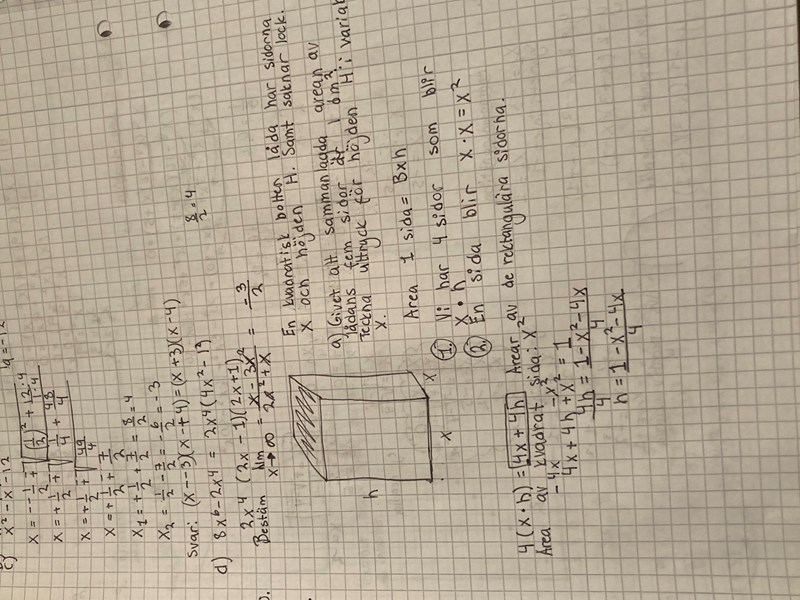 c) x² - x - 12 a = -12
x = - -1/2 ± √((1/2)² + 12·4/1·4)
x = + 1/2 ± √(1/4 + 48/4)
x = + 1/2 ± √(49/4)
x = + 1/2 ± 7/2
x₁ = + 1/2 + 7/2 = 8/2 = 4
x₂ = 1/2 - 7/2 = - 6/2 = -3
8/2 = 4
Svar: (x--3)(x+4) = (x+3)(x-4)
d) 8x⁶ - 2x⁴ = 2x⁴(4x² - 1²)
2x⁴ (2x - 1)(2x+1)
Bestäm lim x→∞ = x - 3x²/2a² + x = -3/2
En kvadratisk botten låda har sidorna
x och höjden H. Samt saknar lock.
a) Givet att sammanlagda arean av
lådans fem sidor är 1 dm²
Teckna uttryck för höjden "H" i variab
x.
h
x
x
Area 1 sida = Bxh
① Vi har 4 sidor som blir
x · h
② En sida blir x · x = x²
4(x·h) = 4x + 4h Arear av de rektangulära sidorna.
Area av kvadrat sida: x²
-4x -x²
4x + 4h + x² = 1
4h/4 = 1 - x² - 4x/4
h = 1 - x² - 4x/4